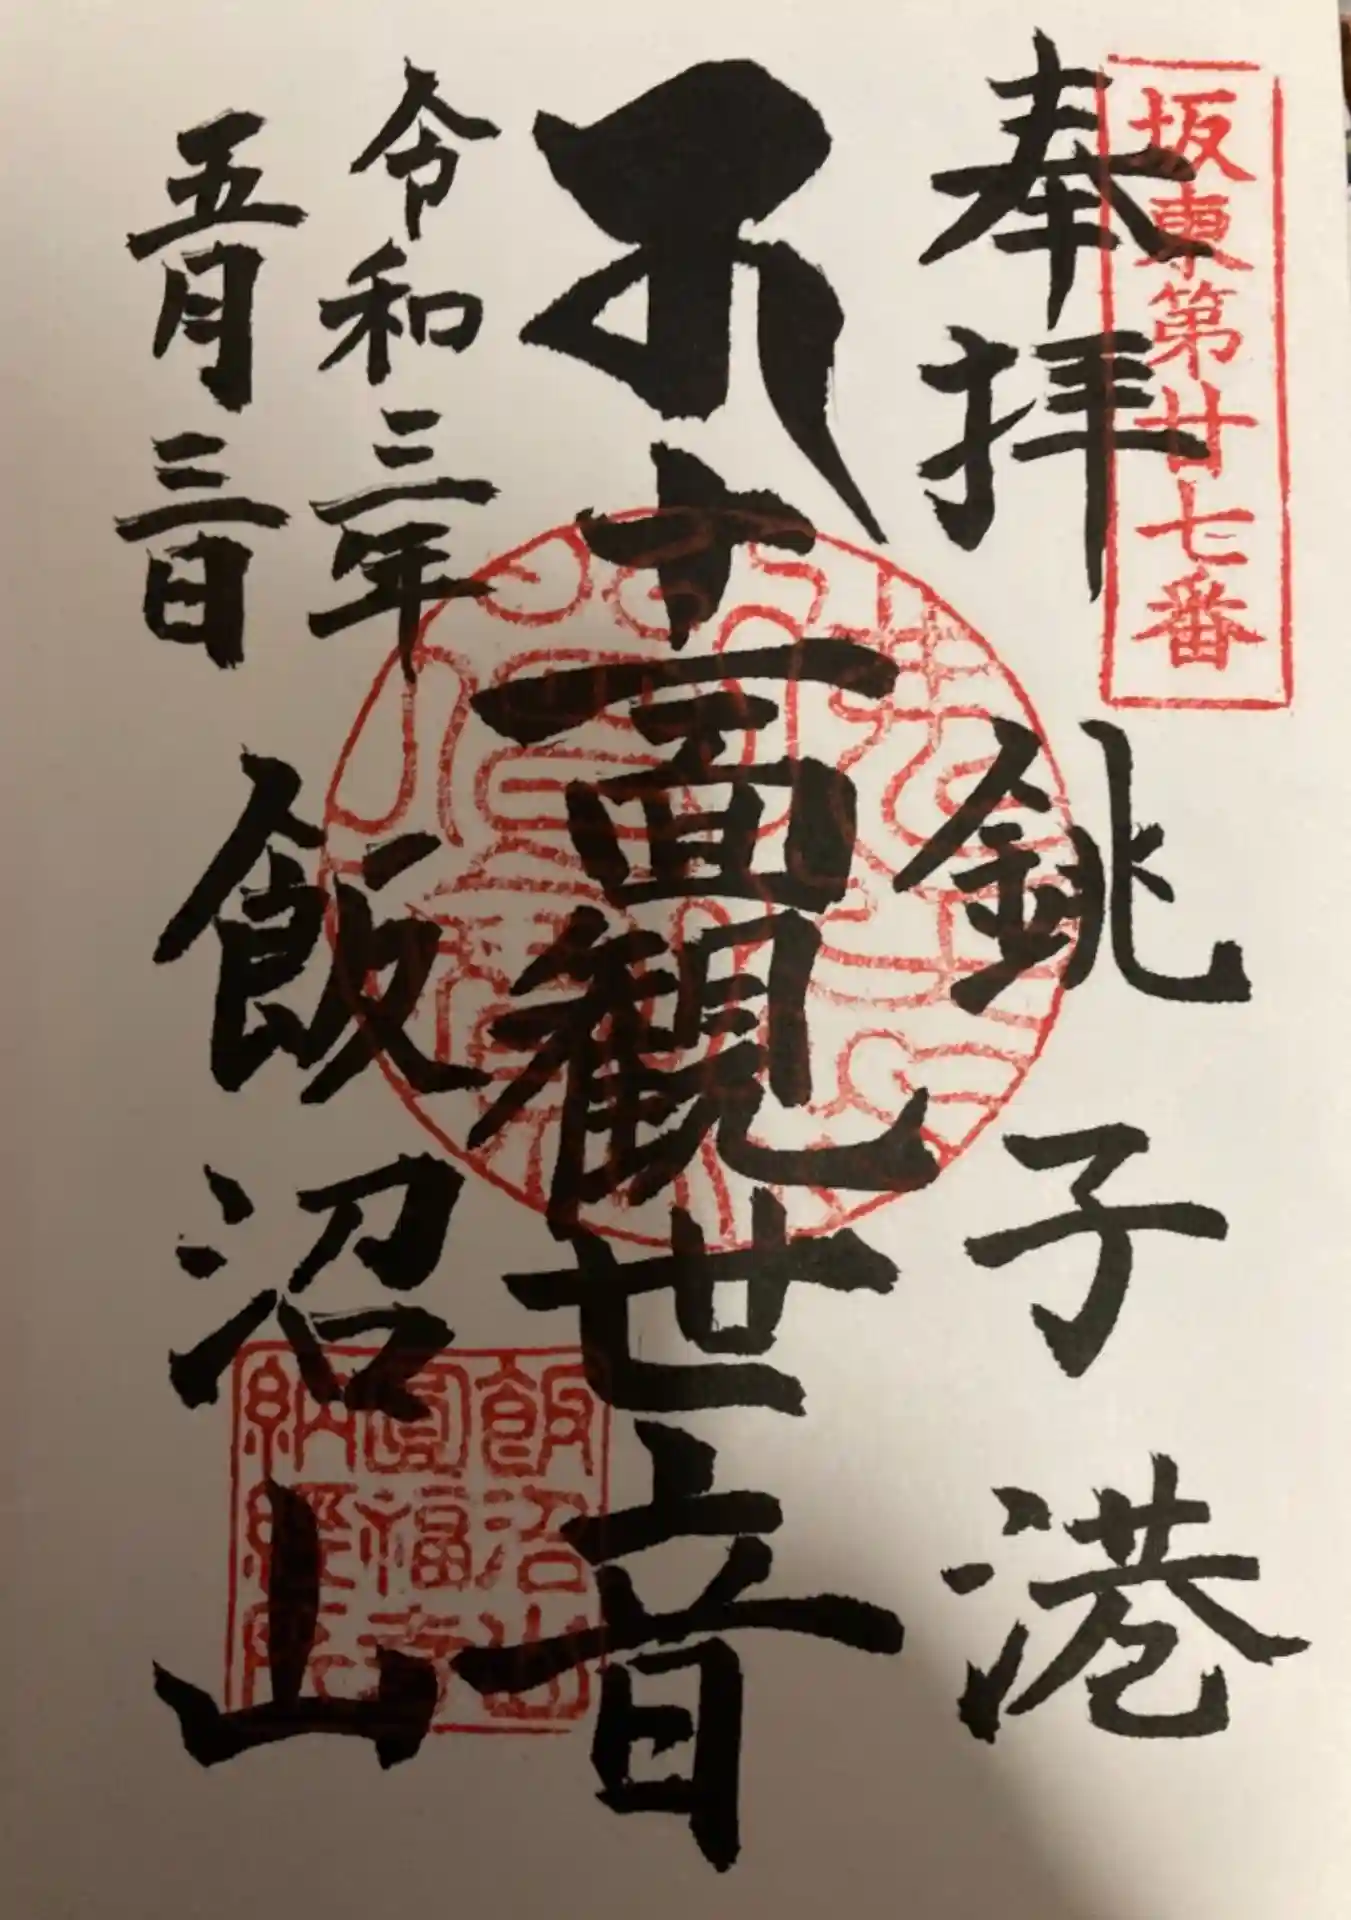 坂東第廿七番
奉拝
銚子港
十一面観世音
令和三年
五月三日
飯沼山
飯沼山
圓福寺
納経所